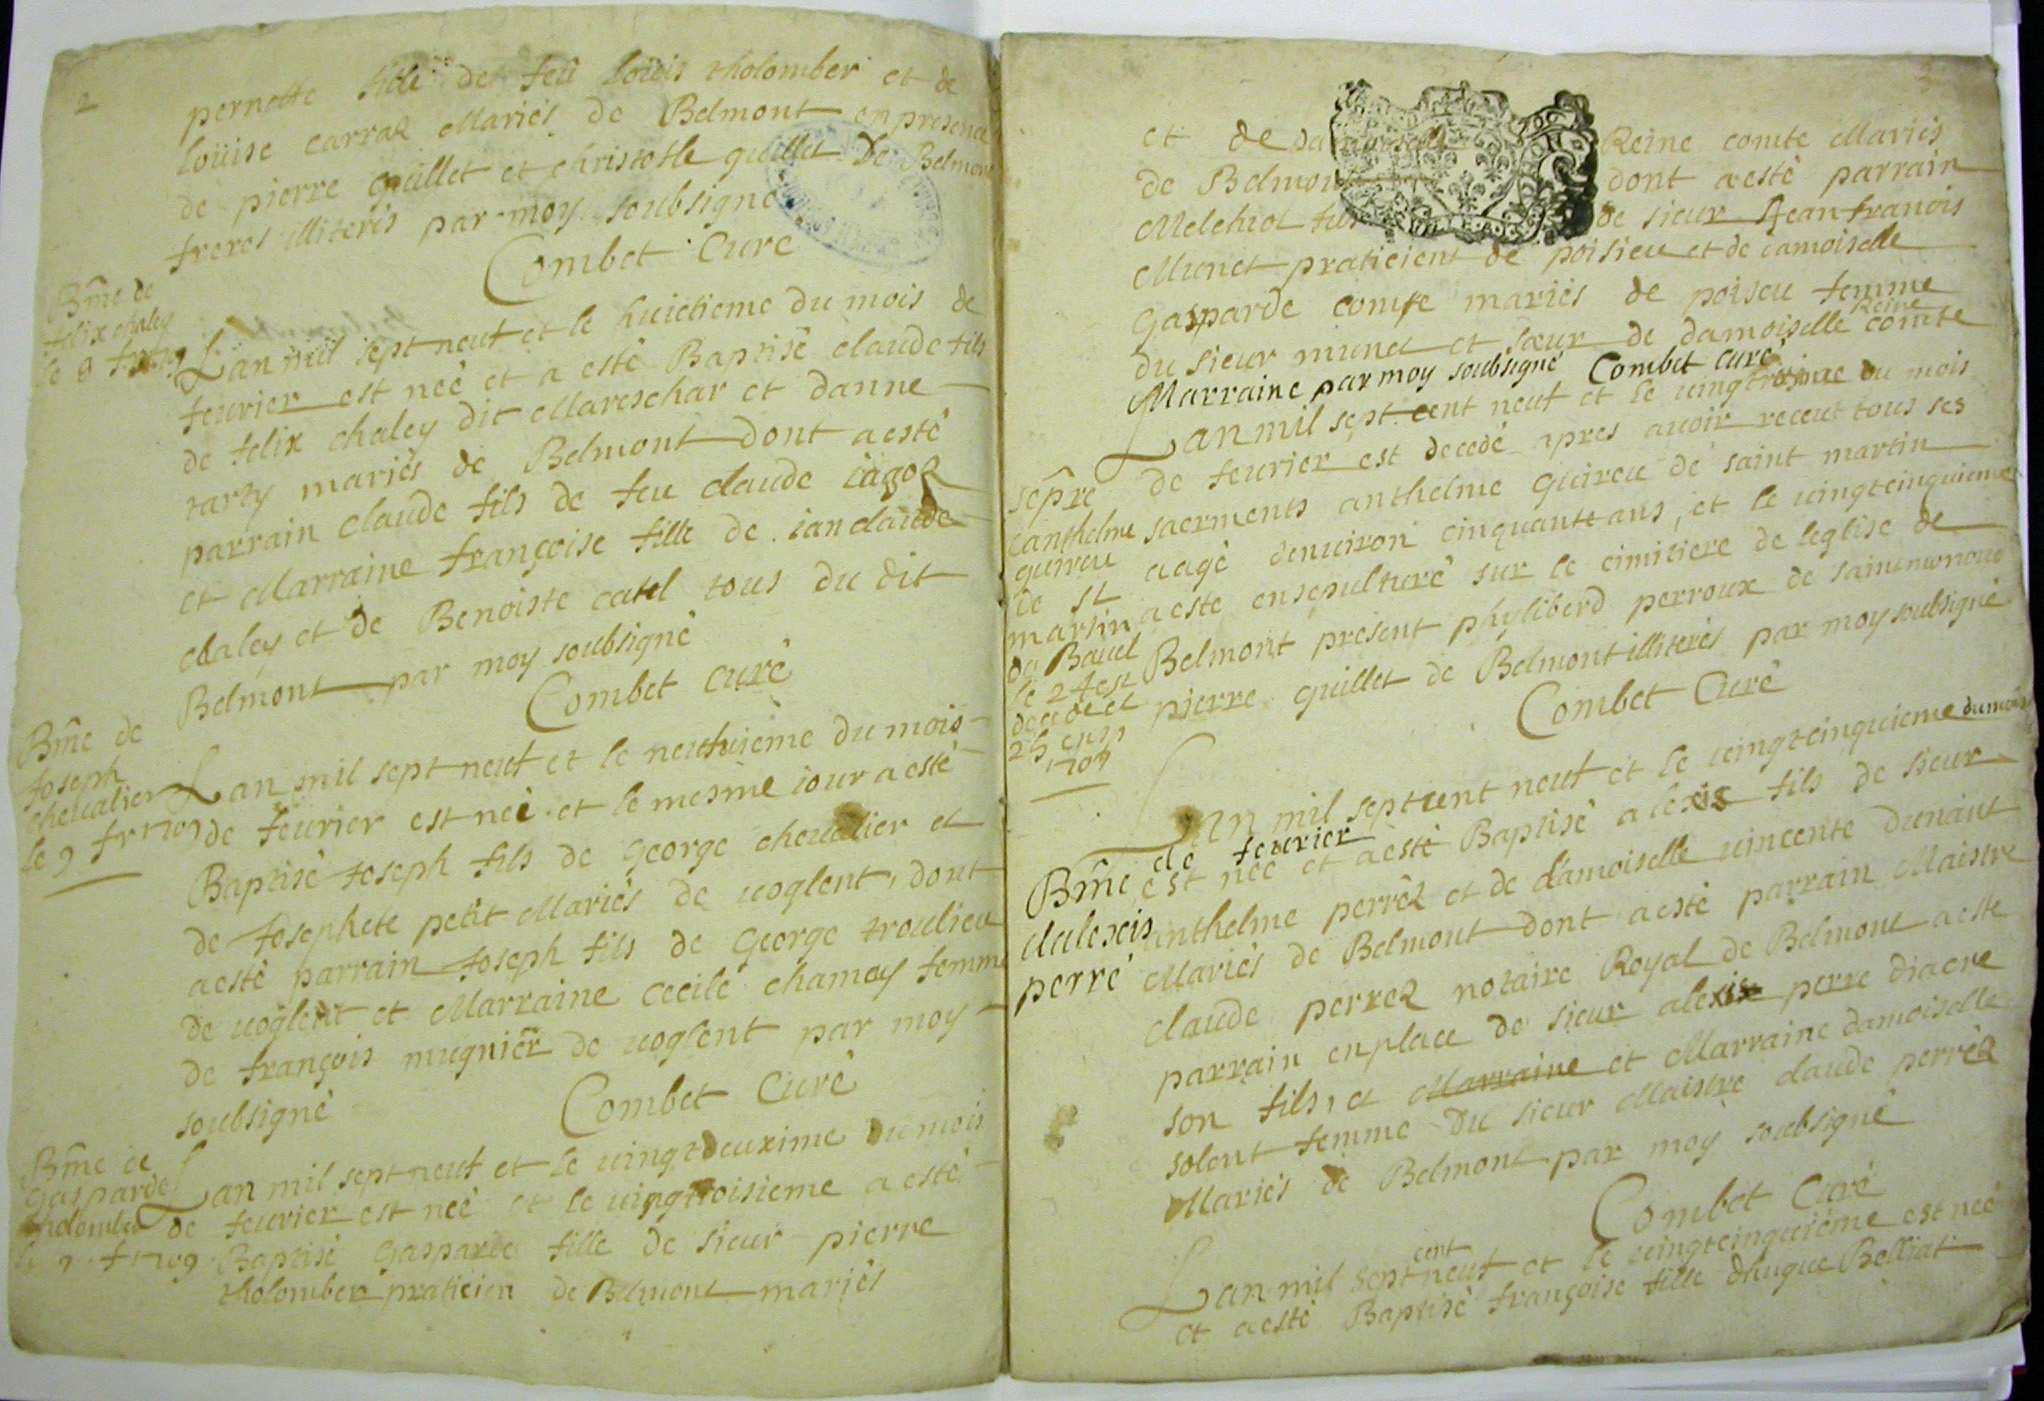 2
pernette fille de feû loüis tholomber et de
loüise carraz Mariés de Belmont en presence
de pierre guillet et christofle guillet De Belmont
freres illiterés par moy soubsigné
Combet Curé
Bme de
felix chaley
le 8
Lan mil sept neuf et le huictieme du mois de
feurier est neé et a esté Baptisé claude fils
de felix chaley dit Mareschar et danne
tarzy mariés de Belmont dont a esté
parrain claude fils de feu claude
et Marraine françoise fille de ian claude
chaley et de Benoiste catel tous du dit
Belmont par moy soubsigné
Combet curé
Bme de
Joseph
cheualier
le 9 fr 1709
Lan mil sept neuf et le neufuiéme du mois
de feurier est neé et le mesme iour a esté
Baptisé Joseph fils de George cheualier et
de Josephete petit Mariés de uoglent, dont
a esté parrain Joseph fils de George troulieu
de uoglent et Marraine cecile chamay femme
de françois mugnier de uoglent par moy
soubsigné
Combet Curé
Bme de
Gasparde
tholomber
1709
Lan mil sept neuf et le uingtdeuxime du mois
de feurier est neé et le uingtroisieme a esté
Baptisé Gasparde fille de sieur pierre
tholomber praticien de Belmont mariés
et de damoiselle Reine comte Mariés
de Belmont dont a esté parrain
Melchiot fils de sieur Jean franois
Munet praticient de poisieu et de damoiselle
Gasparde comte mariés de poiseu femme
du sieur munet et sœur de damoiselle Reine comte
Marraine par moy soubsigné Combet curé
Lan mil sept cent neuf et le uingtroisime du mois
de feurier est decedé apres auoir receut tous ses
sacrments anthelme guireu de saint martin
aagé denuiron cinquante ans, et le uingtcinquieme
a esté ensepulturé sur le cimitiere de leglise de
Belmont present phyliberd perroux de
pierre guillet de Belmont illiterés par moy soubsigné
Combet Curé
sepre
danthelme
guireu
de st
martin
du Bauel
le 24 est
decedé et
25
1709
Lan mil sept cent neuf et le uingtcinquieme du mois
de feurier
est neé et a esté Baptisé alexis fils de sieur
anthelme perréz et de damoiselle uincente dunant
Mariés de Belmont dont a esté parrain Maistre
claude perrez notaire Royal de Belmont a este
parrain en place de sieur alexis perre diacre
son fils, et Marraine et Marraine damoiselle
solent femme Du sieur Maistre claude perréz
Mariés de Belmont par moy soubsigné
Combet Curé
Bme
dalexis
perré
Lan mil sept cent neuf et le uingtcinquiéme est neé
et a esté Baptisé françoise fille dhugue Belliat